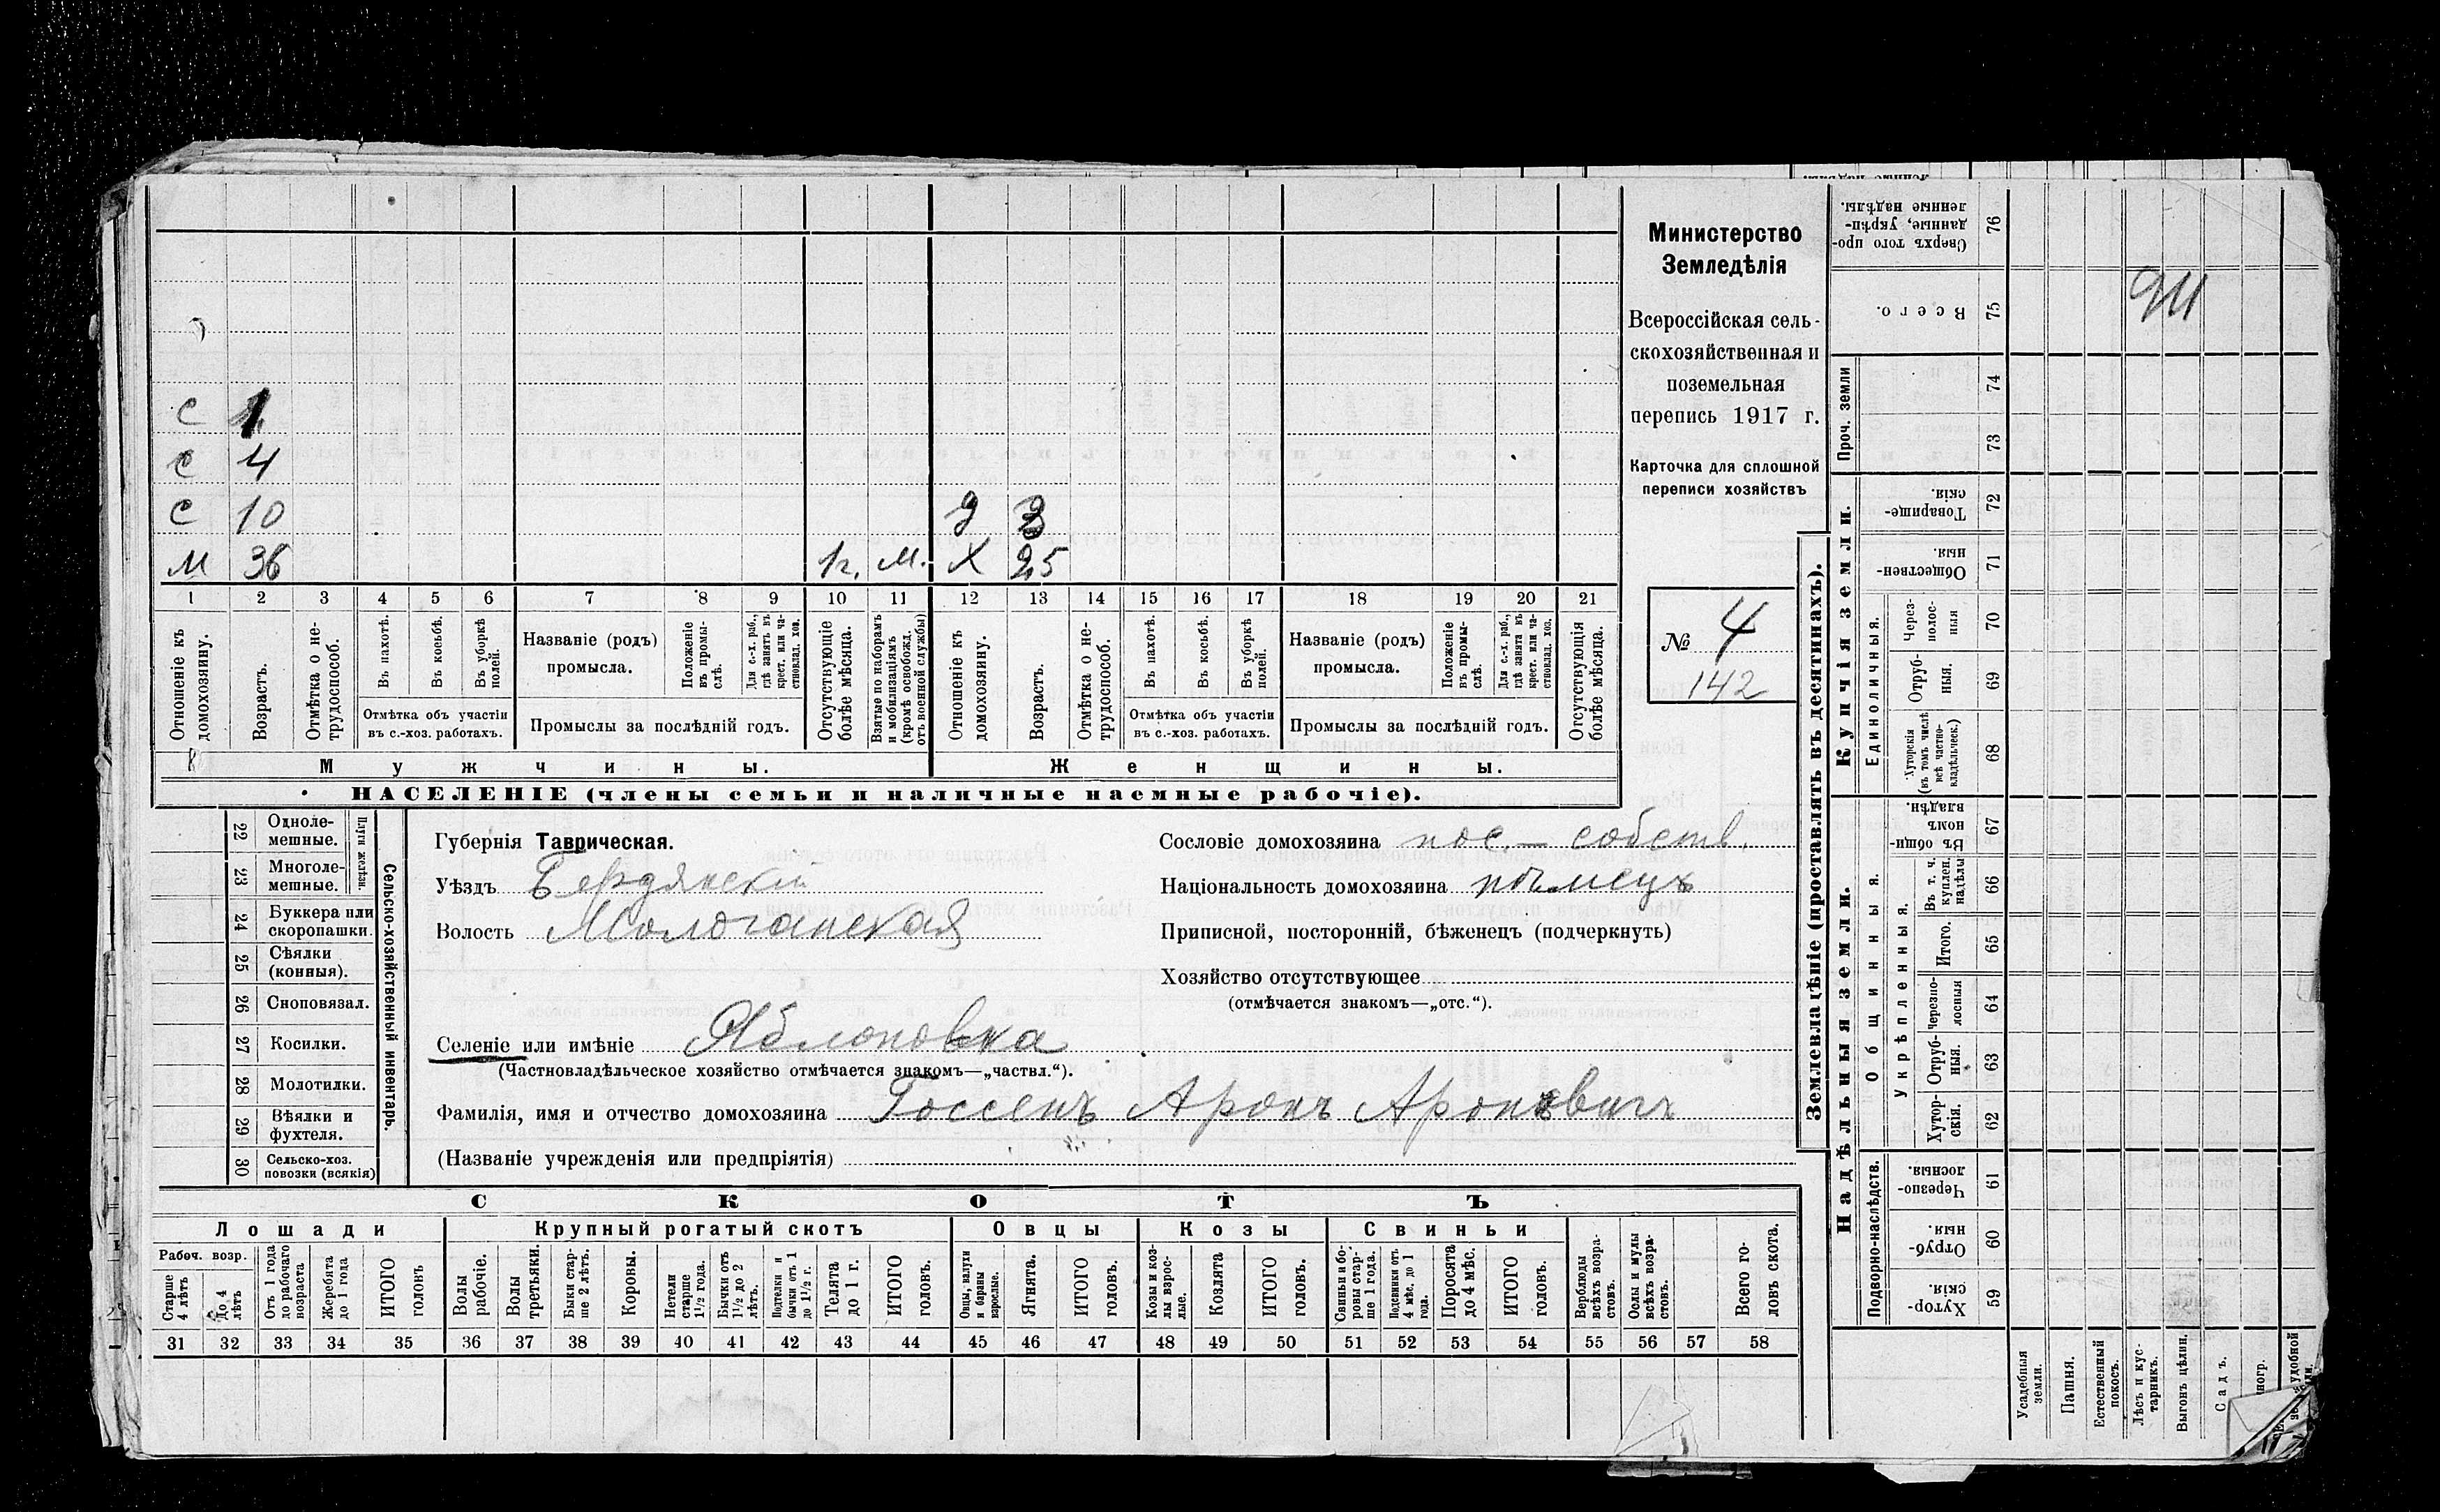 С 1
С 4
С 10 д 3
М 36 1 г. м. Х 25
1 2 3 4 5 6 7 8 9 10 11 12 13 14 15 16 17 18 19 20 21
Отношеніе къ домохозяину.
Возрастъ.
Отмѣтка о не-трудоспособ.
Въ пахотѣ.
Въ косьбѣ.
Въ уборкѣ полей.
Отмѣтка объ участіи
въ с.-хоз. работахъ.
Названіе (родъ)
промысла.
Положеніе въ промы-слѣ.
Для с.-х. раб., гдѣ занятъ въ крест. или ча-стновлад. хоз.
Промыслы за послѣдній годъ.
Отсутствующіе болѣе мѣсяца.
Взятые по наборамъ и мобилизаціямъ (кромѣ освобожд. отъ военной службы)
Отношеніе къ домохозяину.
Возрастъ.
Отмѣтка о не-трудоспособ.
Въ пахотѣ.
Въ косьбѣ.
Въ уборкѣ полей.
Отмѣтка объ участіи
въ с.-хоз. работахъ.
Названіе (родъ)
промысла.
Положеніе въ промы-слѣ.
Для с.-х. раб., гдѣ занята въ крест. или ча-стновлад. хоз.
Промыслы за послѣдній годъ.
Отсутствующія болѣе мѣсяца.
Мужчины.
Женщины.
НАСЕЛЕНІЕ (члены семьи и наличные наемные рабочіе).
Министерство
Земледѣлія
Всероссійская сель-
скохозяйственная и
поземельная
перепись 1917 г.
Карточка для сплошной
переписи хозяйствъ
№ 4
142
22 Одноле-мешные.
23 Многоле-мешные.
Плуги желѣзн.
24 Буккера или скоропашки.
25 Сѣялки (конныя).
26 Сноповязал.
27 Косилки.
28 Молотилки.
29 Вѣялки и фухтеля.
30 Сельско-хоз. повозки (всякія)
Сельско-хозяйственный инвентарь.
Губернія Таврическая.
Уѣздъ Бердянскій
Волость Молочанская
Селеніе или имѣніе Яблоновка
(Частновладѣльческое хозяйство отмѣчается знакомъ—„частвл.“).
Фамилія, имя и отчество домохозяина Госсенъ Аронъ Ароновичъ
(Названіе учрежденія или предпріятія)
Сословіе домохозяина пос.— собств.
Національность домохозяина нѣмецъ
Приписной, посторонній, бѣженецъ (подчеркнуть)
Хозяйство отсутствующее
(отмѣчается знакомъ—„отс.“).
СКОТЪ
Лошади
Крупный рогатый скотъ
Овцы
Козы
Свиньи
Рабоч. возр.
Старше 4 лѣтъ
До 4 лѣтъ
Отъ 1 года до рабочаго возраста
Жеребята до 1 года
ИТОГО головъ
Волы рабочіе.
Волы третьяки.
Быки стар-ше 2 лѣтъ.
Коровы.
Нетели старше 1½ года.
Бычки отъ 1½ до 2 лѣтъ.
Подтелки и бычки отъ 1 до 1½ г.
Телята до 1 г.
ИТОГО головъ.
Овцы, валухи и бараны взрослые.
Ягнята.
ИТОГО головъ.
Козы и коз-лы взрос-лые.
Козлята
ИТОГО головъ.
Свиньи и бо-ровы стар-ше 1 года.
Подсвинки отъ 4 мѣс. до 1 года.
Поросята до 4 мѣс.
ИТОГО головъ.
Верблюды всѣхъ возра-стовъ.
Ослы и мулы всѣхъ возра-стовъ.
Всего го-ловъ скота.
31 32 33 34 35 36 37 38 39 40 41 42 43 44 45 46 47 48 49 50 51 52 53 54 55 56 57 58
Землевладѣніе (проставлять въ десятинахъ).
Купчія земли.
Надѣльныя земли.
Сверхъ того про-данные, укрѣп-ленные надѣлы. 76
Всего. 75
94
Проч. земли
74
73
Товарище-скія. 72
Обществен-ныя. 71
Единоличныя.
Через-полос-ныя 70
Отруб-ныя. 69
Хуторскія (въ томъ числѣ всѣ частно-владѣльческ.) 68
Общинныя.
Въ общин-номъ владѣн. 67
Укрѣпленныя.
Въ т. ч. куплен. надѣлы 66
Итого. 65
Черезпо-лосныя 64
Отруб-ныя. 63
Хутор-скія. 62
Подворно-наслѣдств.
Черезпо-лосныя 61
Отруб-ныя. 60
Хутор-скія 59
Усадебныя земли.
Пашня.
Естественный покосъ.
Лѣсъ и кус-тарникъ.
Выгонъ цѣлин.
Садъ.